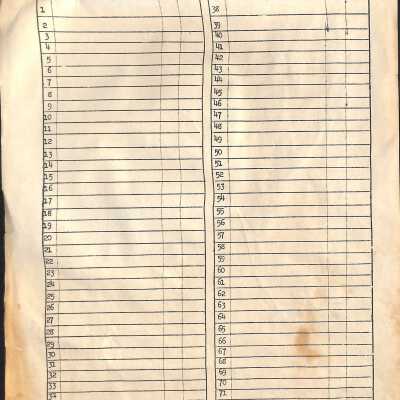 1
2
3
4
5
6
7
8
9
10
11
12
13
14
15
16
17
18
19
20
21
22
23
24
25
26
27
28
29
30
31
32
33
34
38
39
40
41
42
43
44
45
46
47
48
49
50
51
52
53
54
55
56
57
58
59
60
61
62
63
64
65
66
67
68
69
70
71